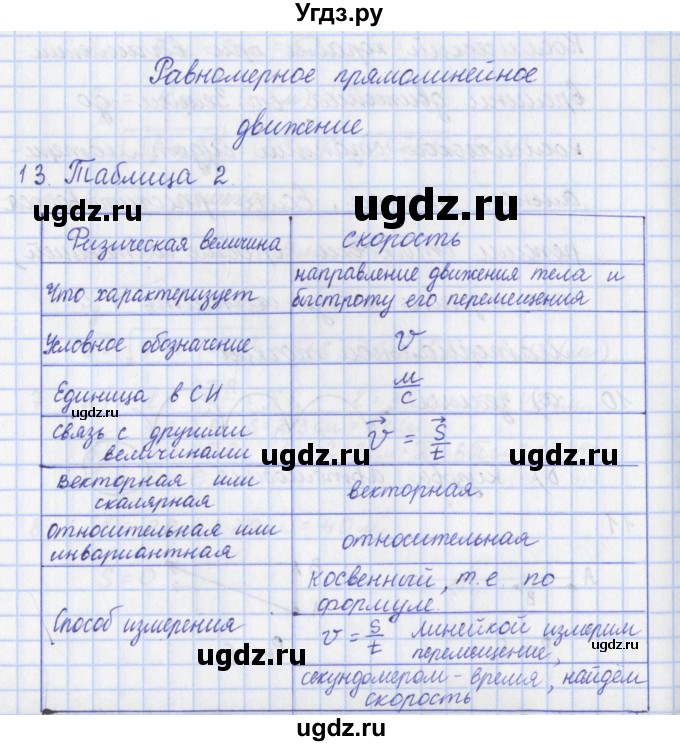 Угдз.ру
Равномерное прямолинейное
движение.
13. Таблица 2.
ugdz.ru ugdz.ru
Физическая величина скорость
Что характеризует направление движения тела и
быстроту его перемещения
ugdz.ru
Условное обозначение v
Единица в СИ м/с
ugdz.ru
связь с другими
величинами v = s/t
ugdz.ru ugdz.ru
векторная или
скалярная векторная
относительная или
инвариантная относительная
Способ измерения косвенный, т.е. по
формуле
v = s/t линейкой измерим
перемещение,
секундомером - время, найдем
скорость
ugdz.ru ugdz.ru
ugdz.ru
Угдз.ру